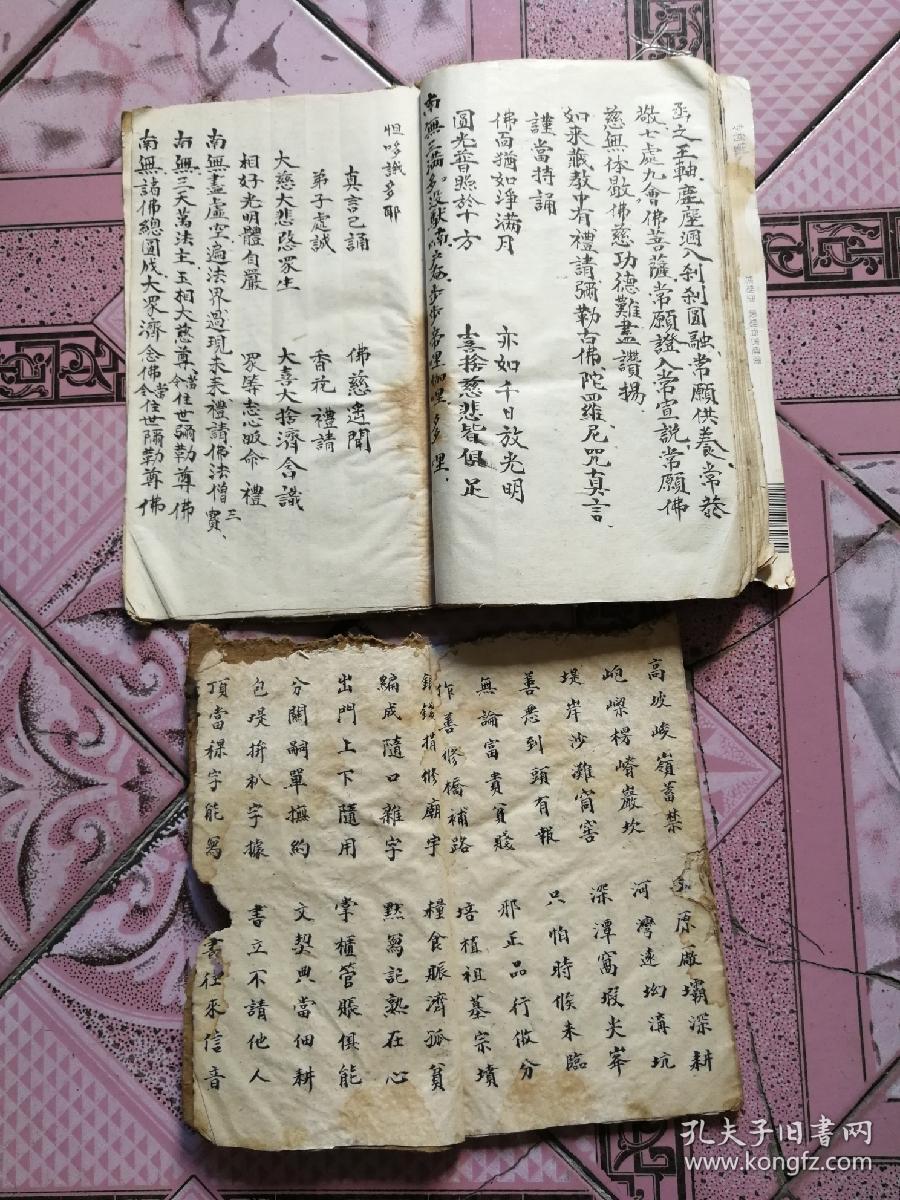 函之玉軸塵塵通入剎剎圓融常願供養常恭
敬七處九會佛菩薩常願證入常宣説常願佛
慈無休歇佛慈功德難盡讚揚
如來藏教中有禮請彌勒古佛陀羅尼咒真言
謹當持誦
佛面猶如淨滿月 亦如千日放光明
圓光普照於十方 喜捨慈悲皆俱足
南無三滿多没馱喃
怛哆識多耶
真言已誦 佛慈遙聞
弟子處誠 香花禮請
大慈大悲愍眾生 大喜大捨濟含識
相好光明體自嚴 眾等志心皈命禮
南無盡虚空遍法界過現未來禮請佛法僧三寳
南無三天萬法主玉相大慈尊當今住世彌勒尊佛
南無諸佛總圓成大眾濟念佛當今住世彌勒尊佛
高坡峻嶺蓄禁 原廠壩深耕
岉嶸楞嵴巖坎 河灣遠坳滇坑
堤岸沙灘窩害 深潭窩瑕尖峯
善惡到頭有報 只怕時候未臨
無論富貴貧賤 邪正品行做分
作善修橋補路 培植祖墓宗墳
銀錢捐修廟宇 糧食賑濟孤貧
編成隨口雜字 默寫記熟在心
出門上下隨用 掌櫃管賬俱能
分關嗣單撫約 文契典當佃耕
包堤拚扒字據 書立不請他人
頂當祿字能寫 書往來信音
孔夫子旧书网
www.kongfz.com